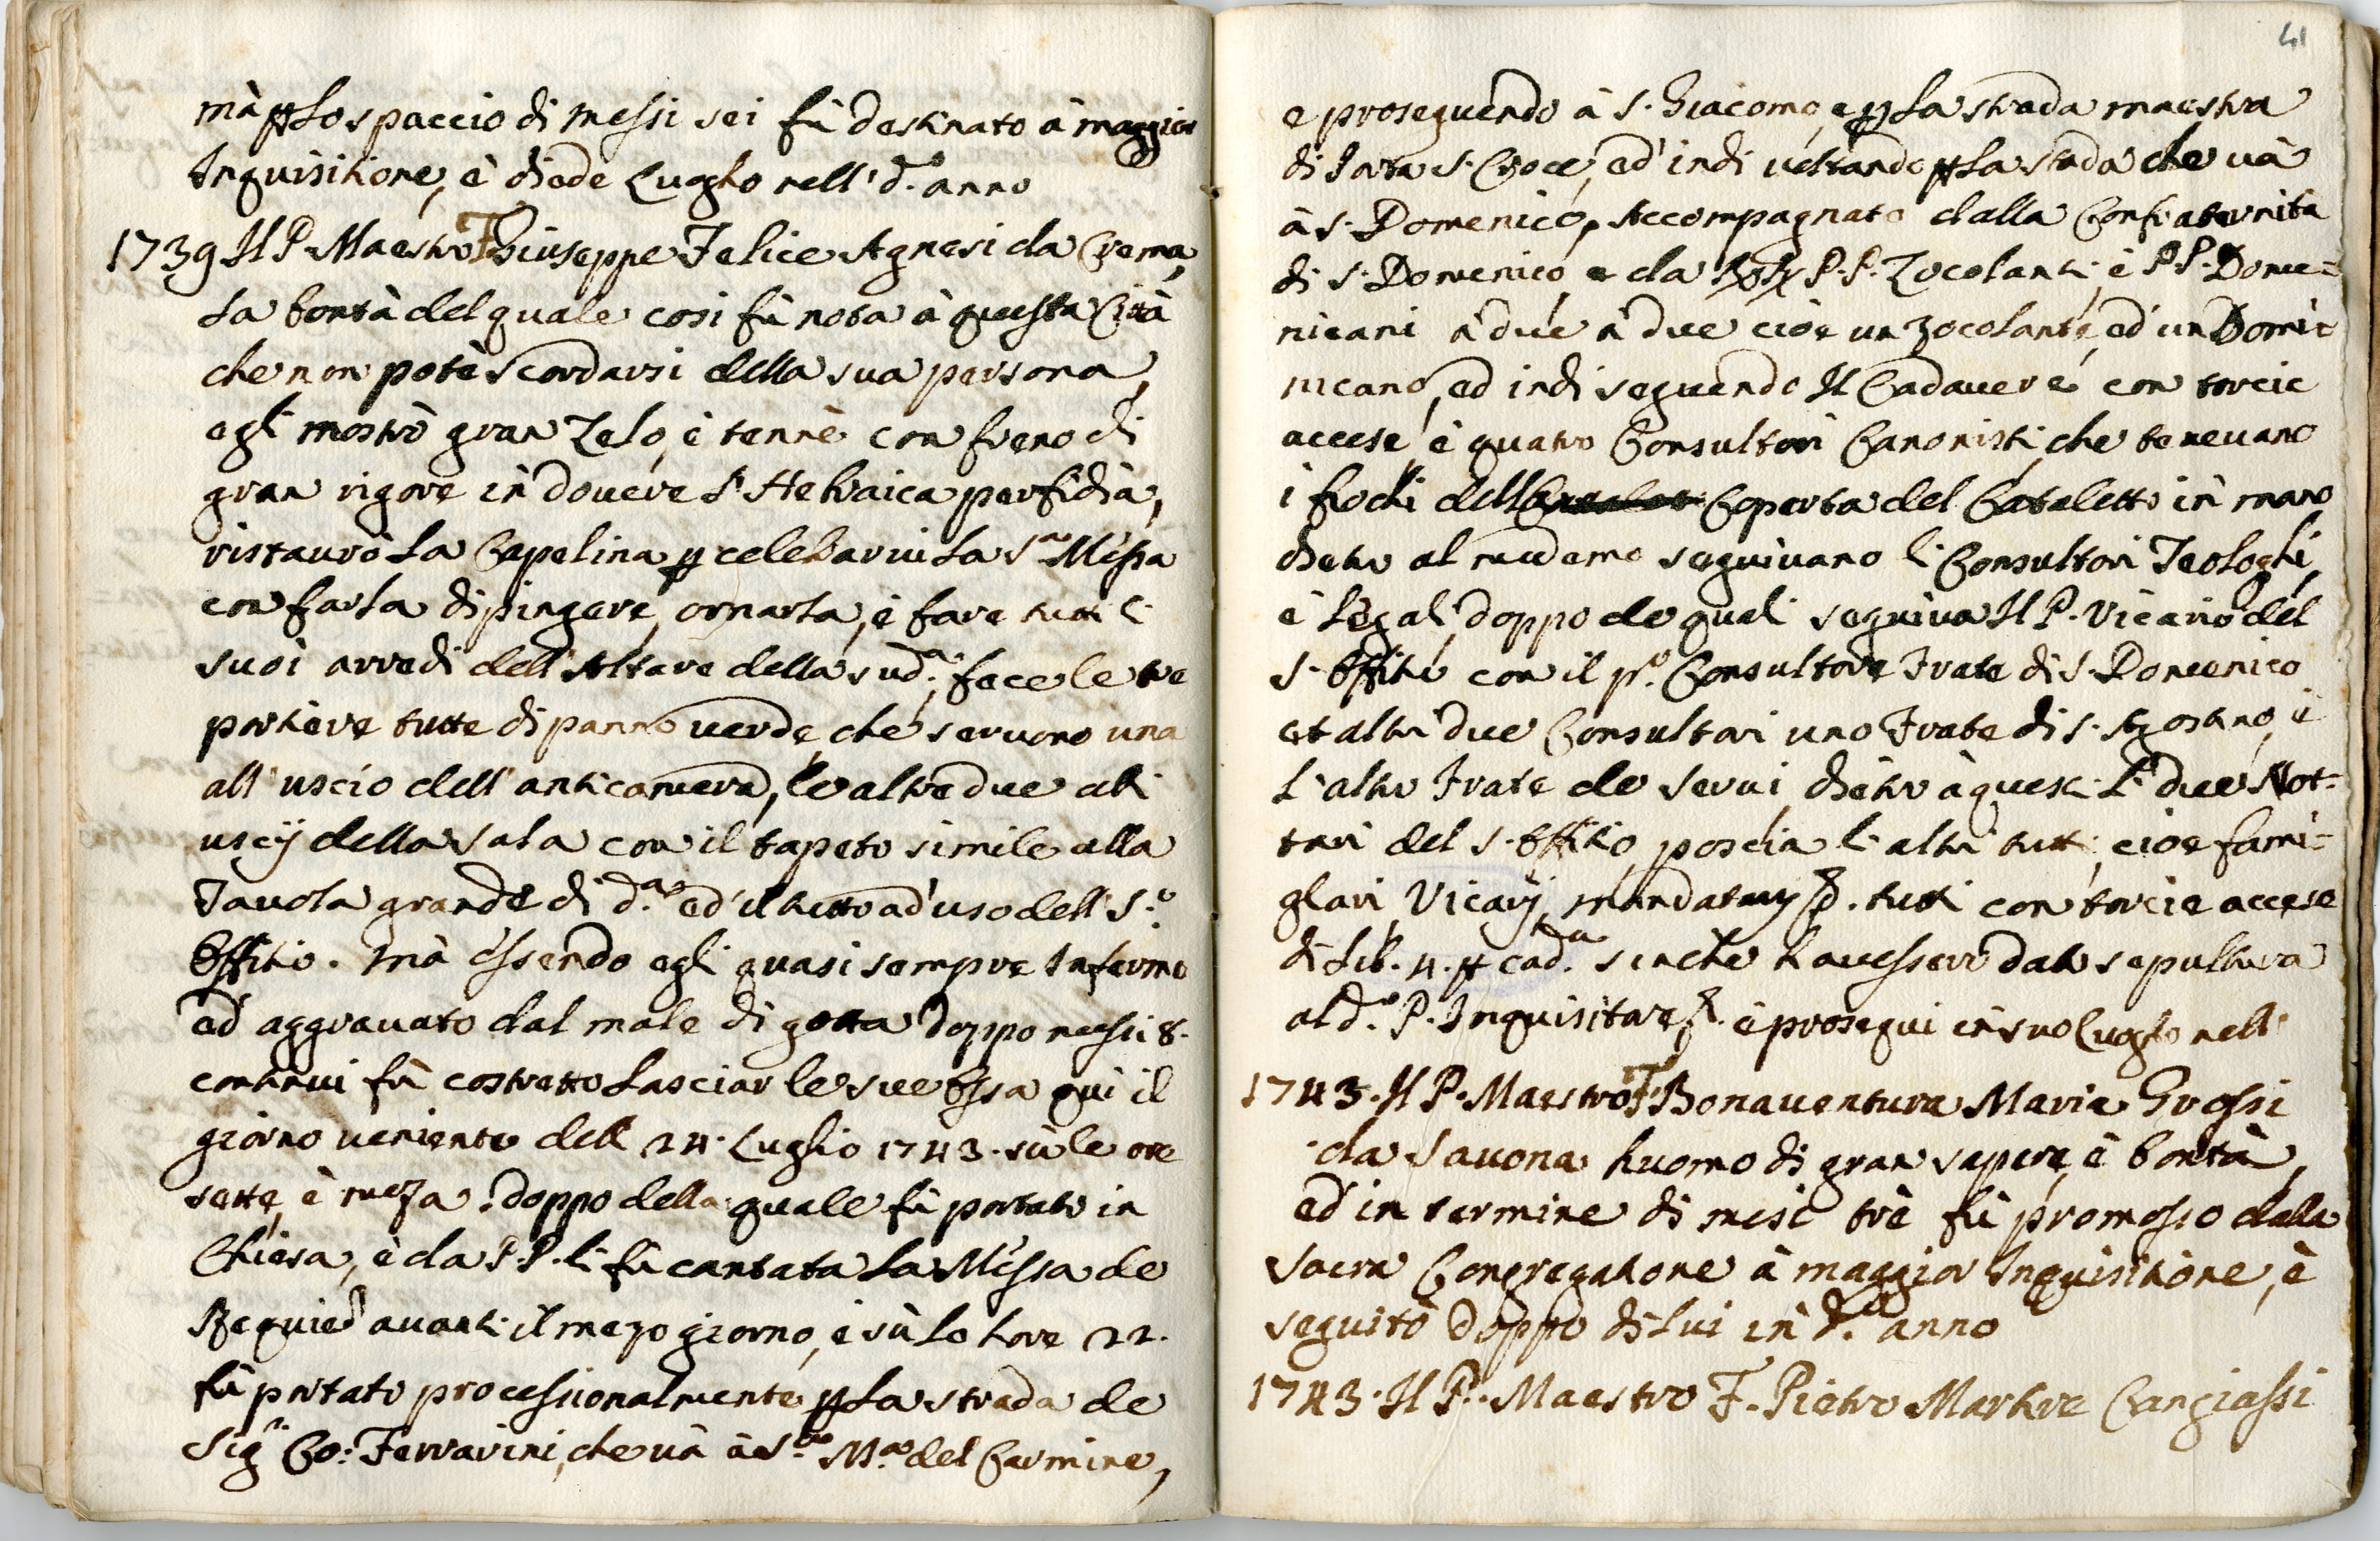 mà p lo spaccio di messi sei fù destinato à maggior
Inquisitione, è diede Luogho nell' d.º anno
1739 Il P. Maestro F. Giuseppe Felice Agnesi da Crema,
la bontà del quale così fù nota à questa Città
che non potè scordarsi della sua persona,
egli mostrò gran Zelo, è tenne con freno di
gran rigore in dovere l'Hebraica perfidia,
ristaurò la Capelina p celebrarvi la S.ª Messa
con farla dipingere, ornarla, è fare tutti li
suoi arredi dell'Altare della sud.ª, fece le tre
portiere tutte di panno verde, che servono una
all'uscio dell'anticamera, le altre due alli
uscij della sala con il tapeto simile alla
Tavola grande di d.ª ed il tutto ad uso dell S.º
Offitio. Mà essendo egli quasi sempre Infermo
ed aggravato dal male di gotta doppo messi 8.
continui fù costretto lasciar le sue Ossa qui il
giorno veniente dell 24. Luglio 1743. sù le ore
sette, è meza. doppo della quale fù portato in
Chiesa, è da P.P. li fù cantata la Messa de
Requie avanti il mezo giorno, è sù lo hore 22.
fù portato processionalmente p la strada de
Sig.ri Co: Ferrarini, che và à S.ta M.ª del Carmine,
41
e proseguendo à S. Giacomo, e p la strada maestra
di Porta S. Croce, ed' indi voltando p la stada che và
à S. Domenico, Accompagnato dalla Confraternita
di S. Domenico, e da P.P. Zocolanti, è P.P. Dome=
nicani à due à due cioè un Zocolante, ed' un Domi=
nicano, ed indi seguendo Il Cadavere con torcie
accese è quatro Consultori Canonisti, che tenevano
i fiochi della Coperta del Cataletto in mano
dietro al medemo seguivano li Consultori Teologhi,
è Legali, doppo de quali seguiva Il P. Vicario del
S. Offitio con il pr.º Consultore Frate di S. Domenico
et altri due Consultori uno Frate di S. Agostino, è
l'altro Frate de Servi, dietro à questi li due Not=
tari del S. Offitio, poscia li altri tutti, cioè fami=
gliari, Vicarij, mandatarij tutti con torcie accese
di Lib. 4. p cad.ª sinchè havessero dato sepultura
al d.º P. Inquisitore è prosegui in suo Luogho nell
1743. Il P. Maestro F. Bonaventura Maria Grossi
da Savona huomo di gran sapere, è bontà,
ed in termine di mesi trè fù promosso dalla
Sacra Congregatione à maggior Inquisitione, è
seguitò doppo di Lui in d.º anno
1743. Il P. Maestro F. Pietro Martire Cangiassi